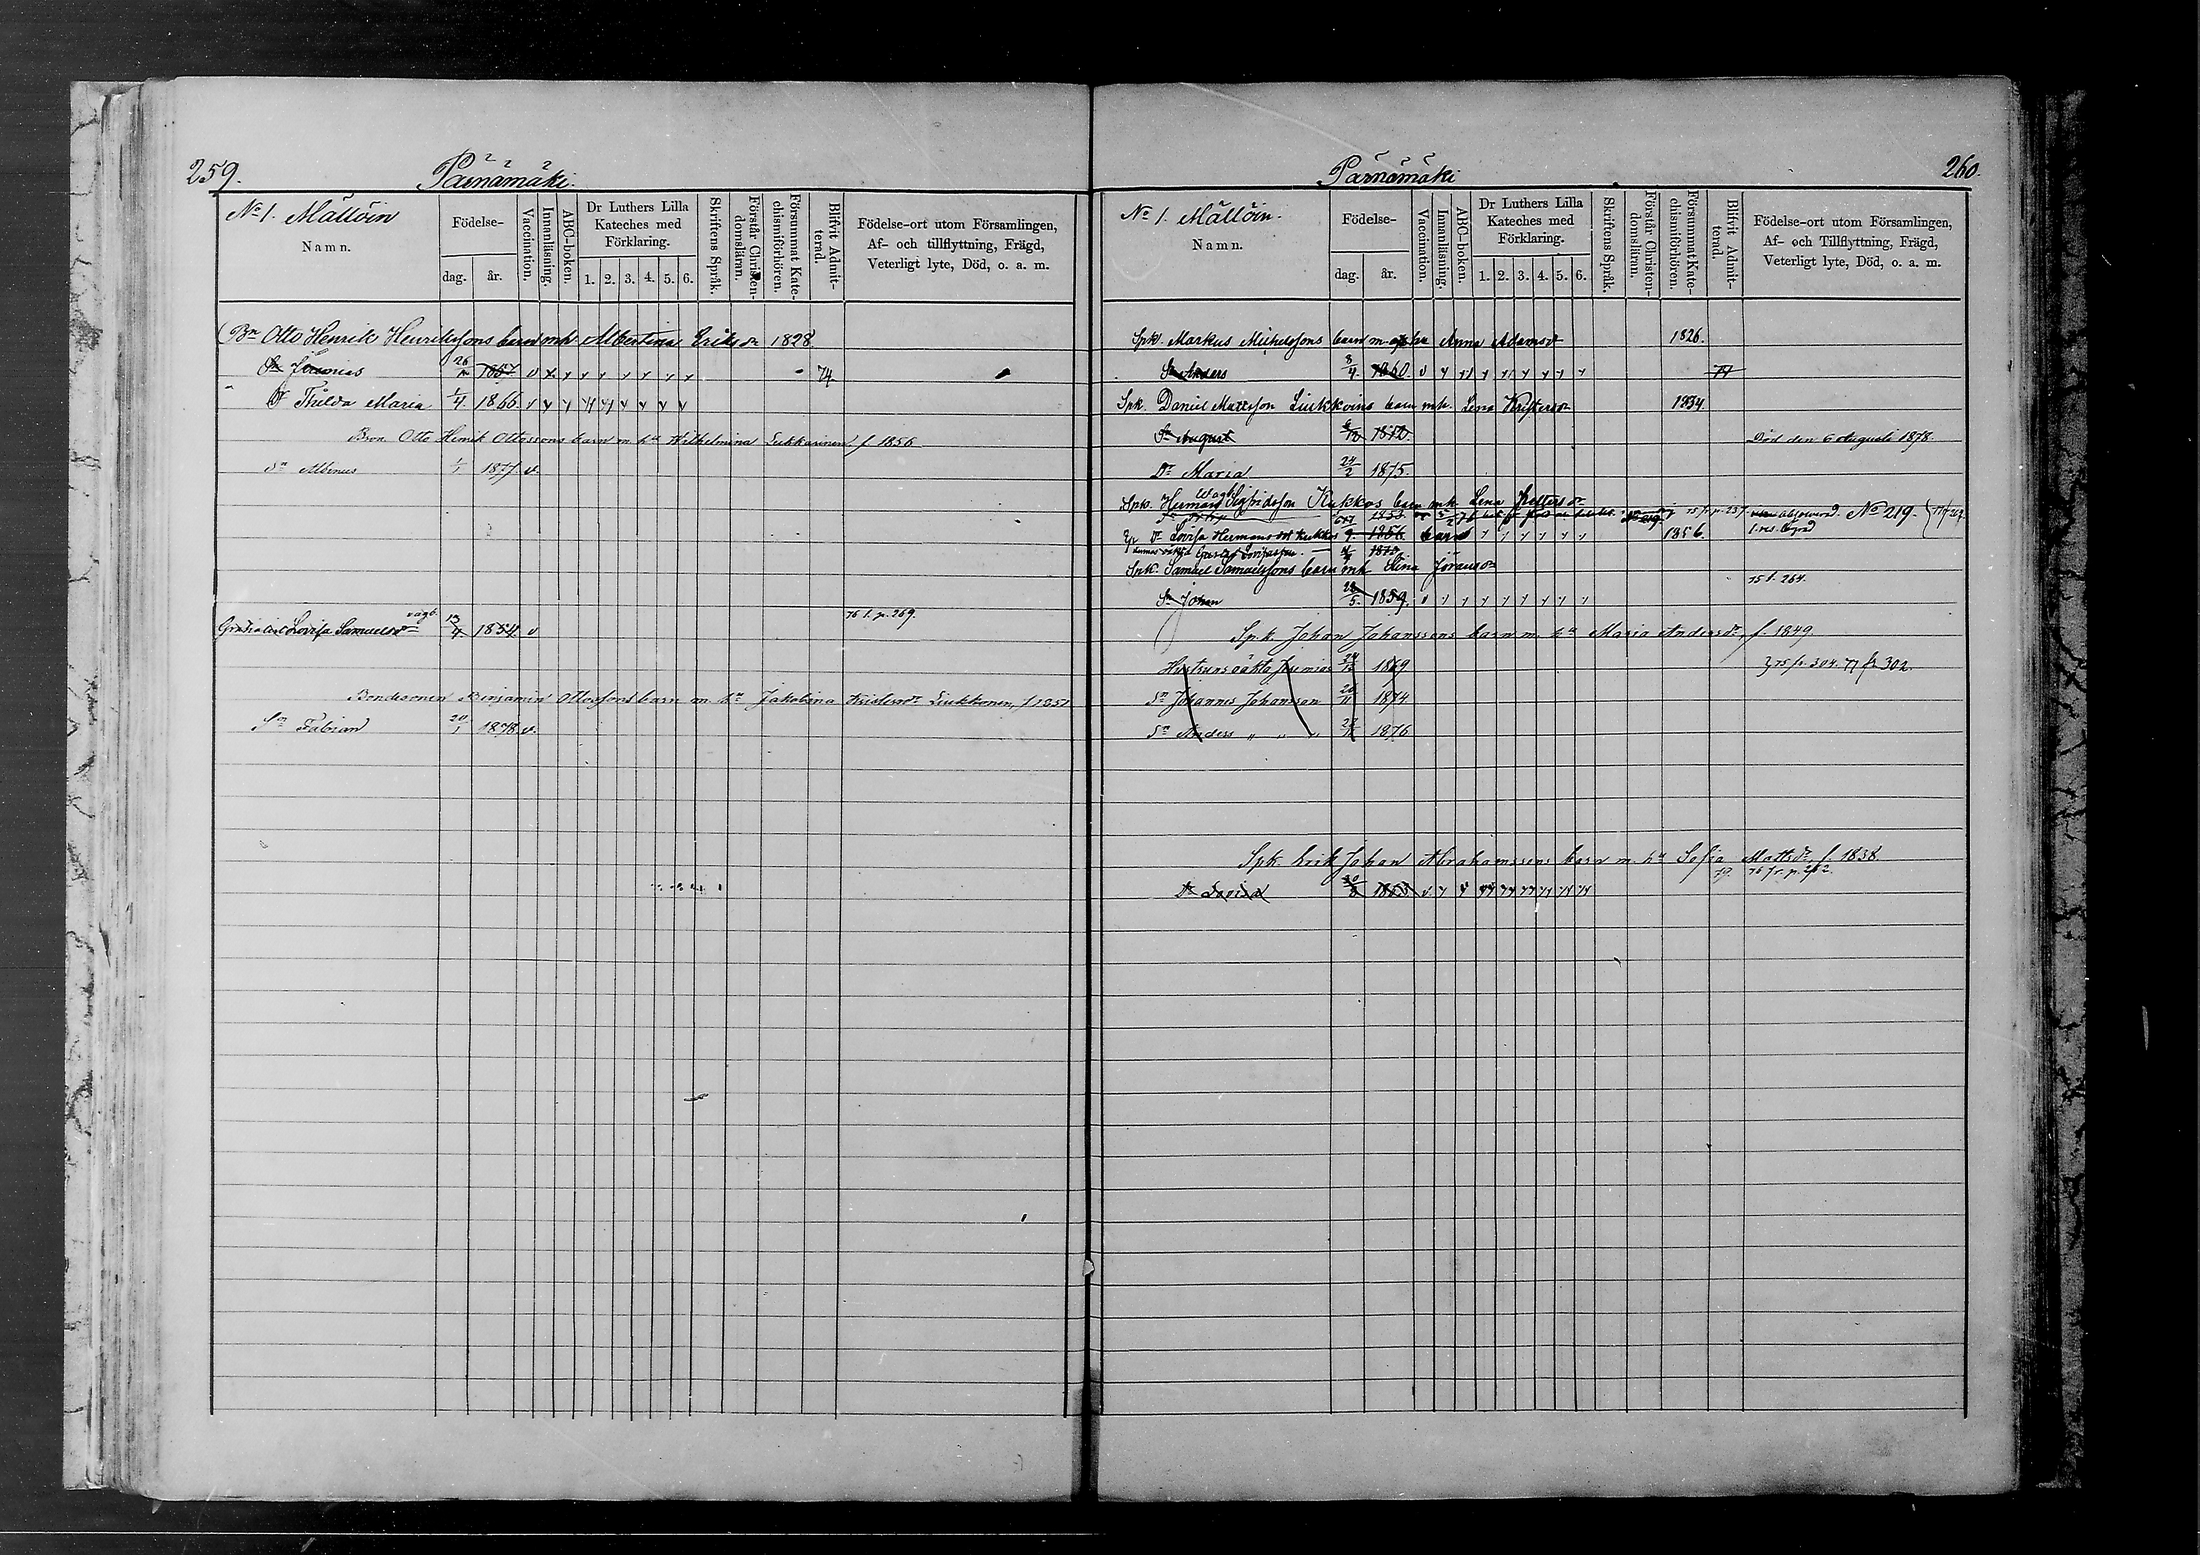 259.
Pärnämäki.
No 1. Mällöin
Namn.
Födelse-
dag.
år.
Vaccination.
Innanläsning.
ABC-boken.
Dr Luthers Lilla
Kateches med
Förklaring.
1. 2. 3. 4. 5. 6.
Skriftens Språk.
Förstår Christen-
domsläran.
Försummat Kate-
chismiförhören.
Blifvit Admit-
terad.
Födelse-ort utom Församlingen,
Af- och tillflyttning, Frägd,
Veterligt lyte, Död, o. a. m.
Bn Otto Henrik Henrikssons barn mh Albertina Eriksdr 1828
Sn Jeremias 1857 v 74
Dr Thilda Maria 1/4 1866 v
Bson Otto Henrik Ottossons barn m. hu Wilhelmina Lukkarinen f 1856
Sn Albinus 1/1 1877 v.
76 f. p. 269.
Lovisa Samuelsdr 13/4 1854 v
Bondesonen Benjamin Ottossons barn m. hu Jakobina Kristersdr Liukkonen, f. 1851
Sn Fabian 20/1 1878 v.
260.
Pärnämäki
No 1. Mällöin.
Namn.
Födelse-
dag.
år.
Vaccination.
Innanläsning.
ABC-boken.
Dr Luthers Lilla
Kateches med
Förklaring.
1. 2. 3. 4. 5. 6.
Skriftens Språk.
Förstår Christen-
domsläran.
Försummat Kate-
chismiförhören.
Blifvit Admit-
terad.
Födelse-ort utom Församlingen,
Af- och Tillflyttning, Frägd,
Veterligt lyte, Död, o. a. m.
Spk. Markus Michelssons barn m Anna Adamsdr 1826.
Sn Anders 1860. v
Spk. Daniel Mattsson Liukkoins barn mh. Lena Kristersdr 1834.
Sn August 1872. Död den 6 Augusti 1878.
Dr Maria 24/2 1875.
Spk. Herman Sigfridsson Kukkos barn mh Lena
No 219.
Dr Lovisa Hermansdr Kukkos 1856 1856.
Spk. Samuel Samuelssons barn mh Stina
75 f. 264.
Sn Johan 28/5 1859. v
Spk. Johan Johanssons barn m. hu Maria Andersdr, f. 1849
Hustruns oäkta Jeremias 1869 75 fr. 304. 77 fr 302.
Sn Johannes Johansson 1874
Sn Anders " " " 1876
Spk. Erik Johan Abrahamssons barn m. hu Sofia Mattsdr, f. 1838.
79. 76 fr. p. 262.
Dr Lovisa v